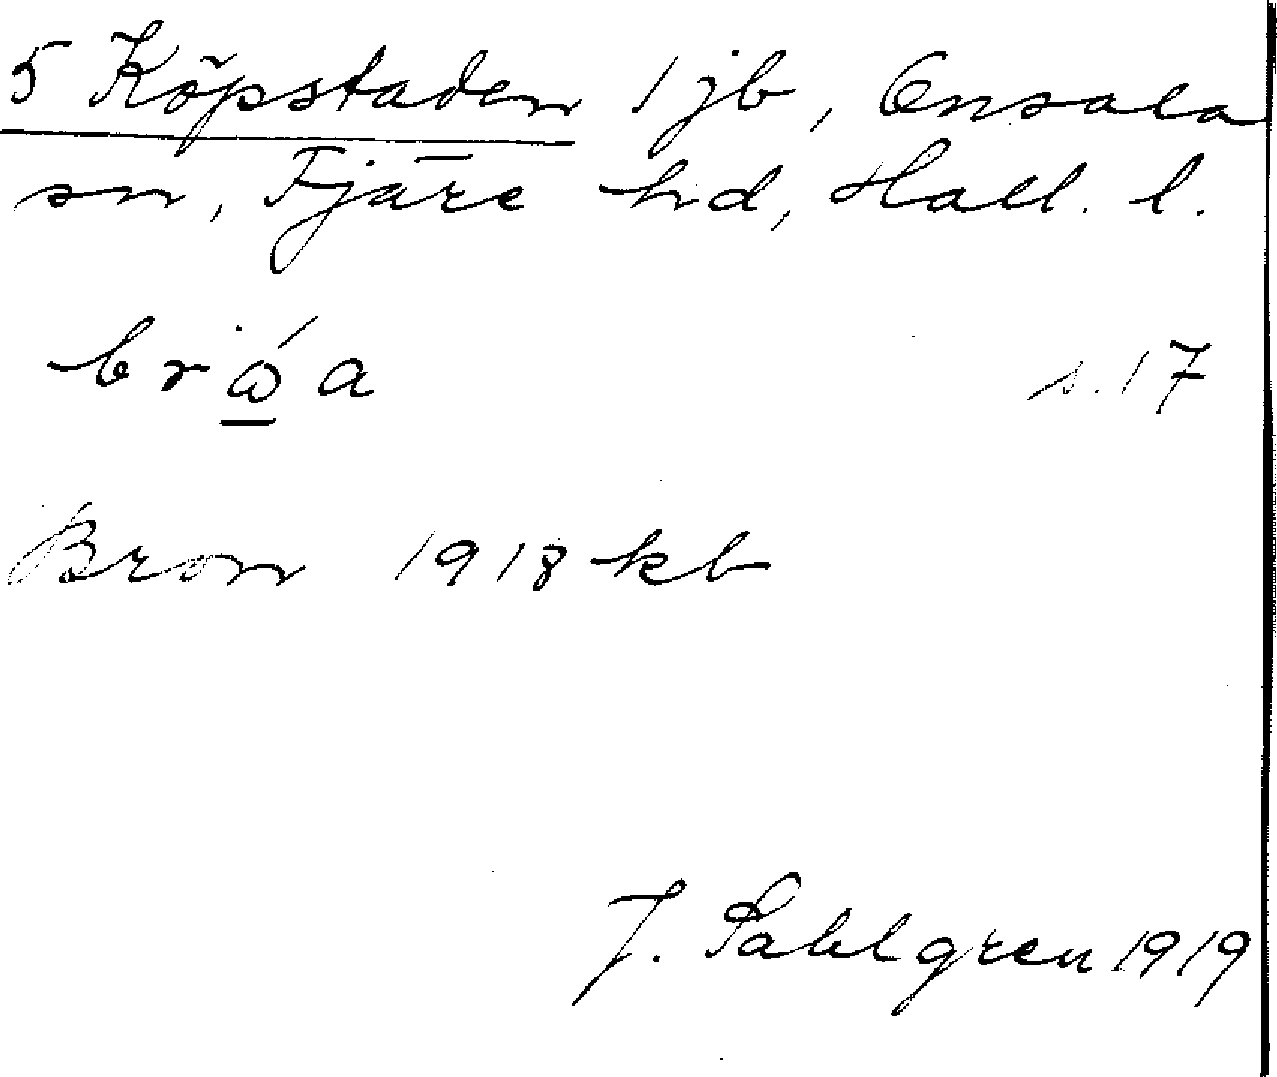 5 Köpstaden 1 jb, Onsala
sn, Fjäre hd, Hall. l.
brώa s. 17
Bron 1918 kb
J. Sahlgren 1919